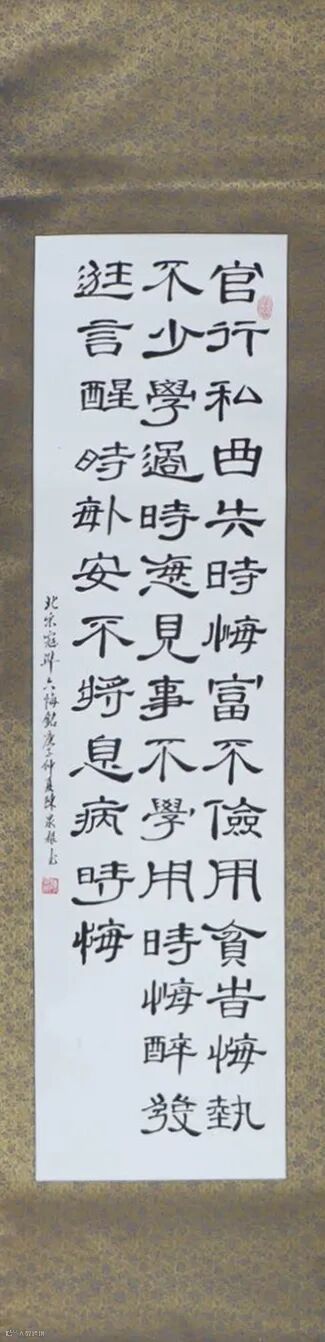 官行私曲失時悔富不儉用貧旹悔埶
不少學過時悔見事不學用時悔醉發
逛言醒時悔安不將息病時悔
北宋寇準六悔銘庚子仲夏陳泉根書